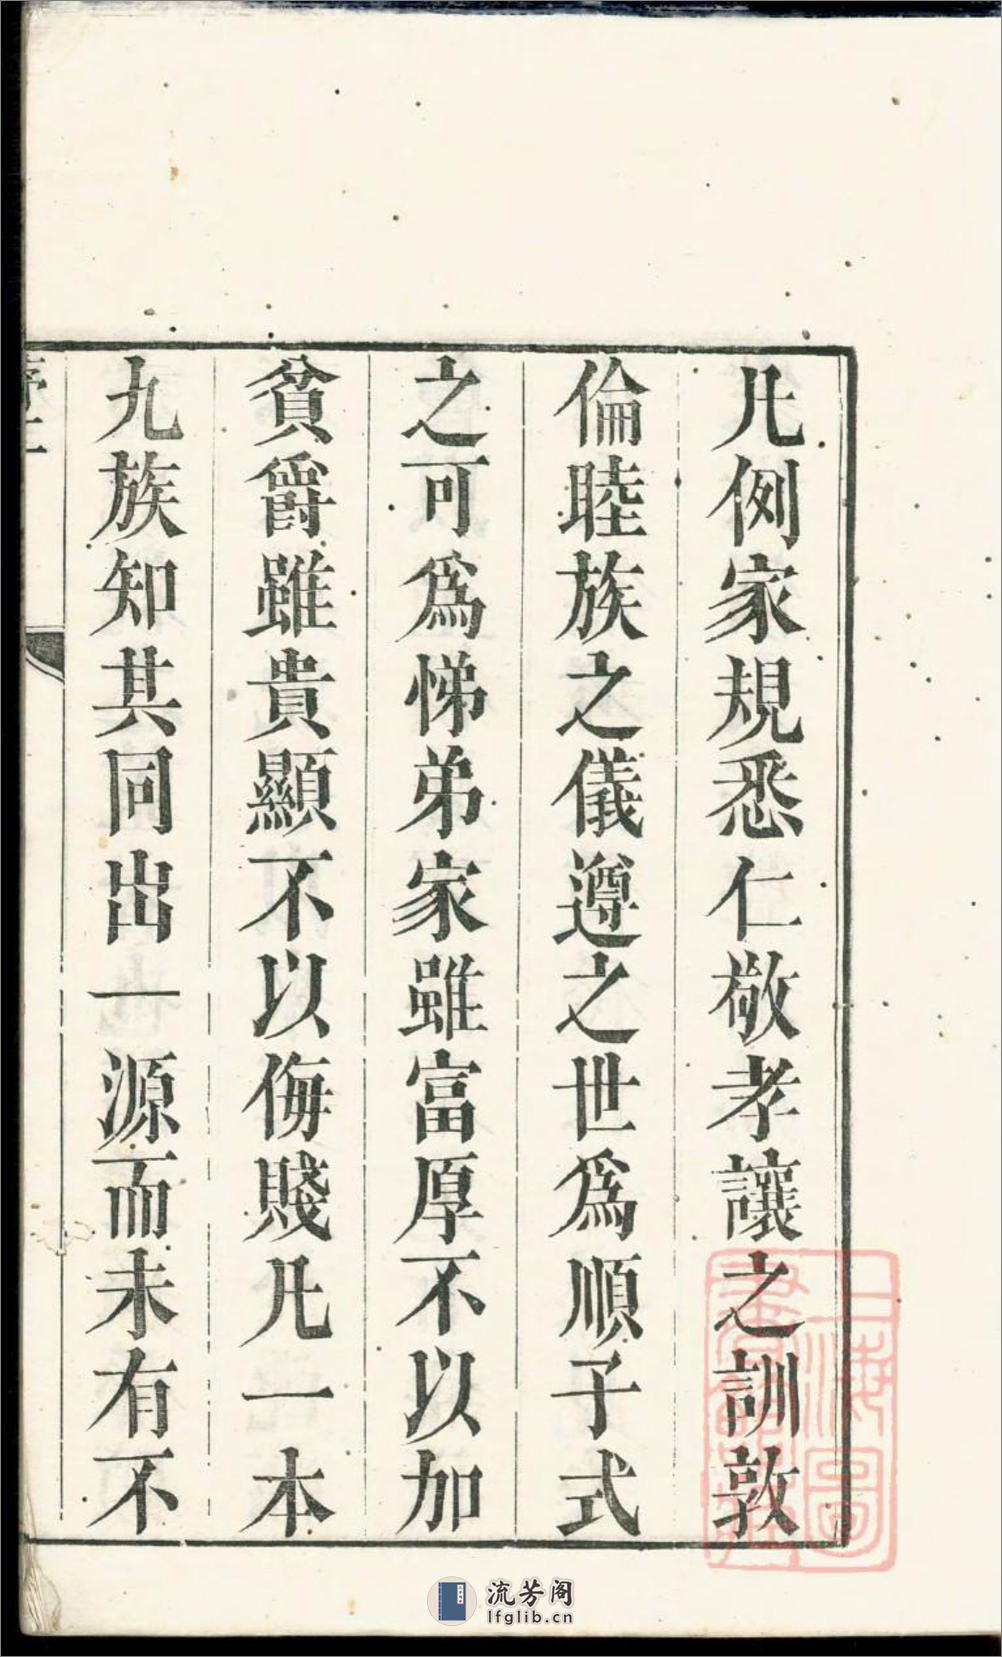 凡例家規悉仁敬孝讓之訓敦
倫睦族之儀遵之世爲順子式
之可爲悌弟家雖富厚不以加
貧爵雖貴顯不以侮賤凡一本
九族知其同出一源而未有不
上海圖書館藏
流芳阁
lfglib.cn